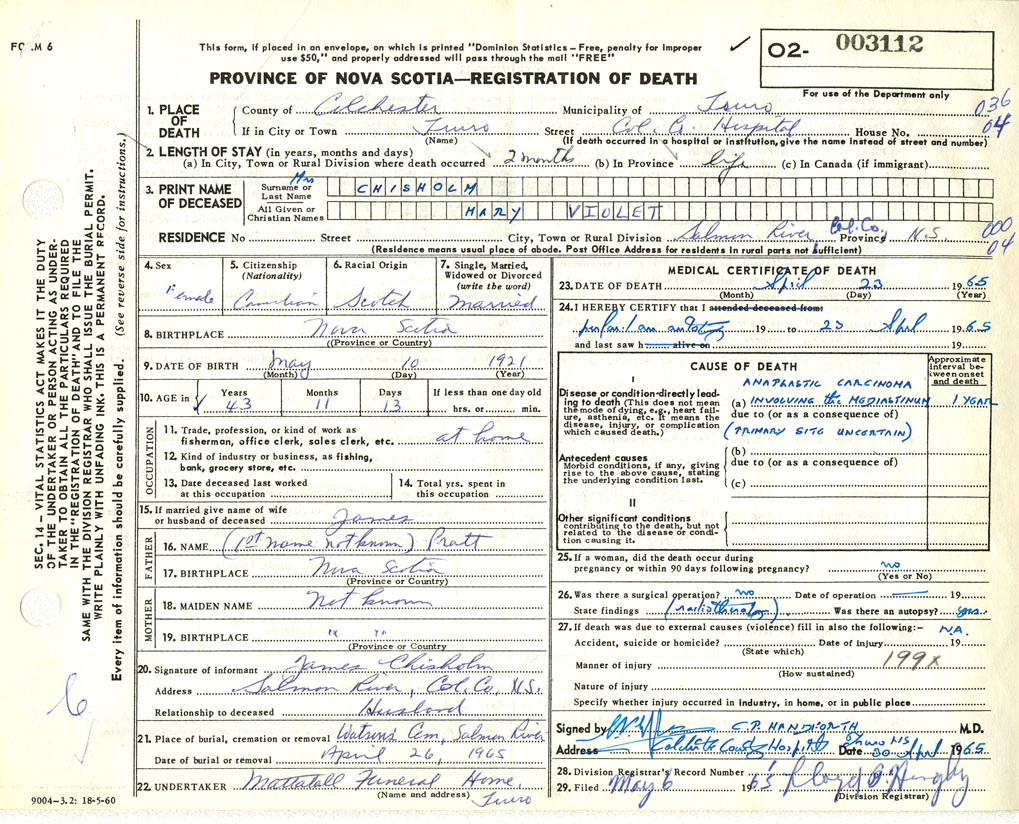 FORM 6
This form, if placed in an envelope, on which is printed "Dominion Statistics – Free, penalty for improper
use $50," and properly addressed will pass through the mail "FREE"
✓
02- 003112
For use of the Department only
PROVINCE OF NOVA SCOTIA—REGISTRATION OF DEATH
1. PLACE OF DEATH
County of Colchester Municipality of Truro 036
If in City or Town Truro Street Col. Co. Hospital House No. 04
(Name) (If death occurred in a hospital or institution, give the name instead of street and number)
2. LENGTH OF STAY (in years, months and days)
(a) In City, Town or Rural Division where death occurred 2 months (b) In Province life (c) In Canada (if immigrant)
3. PRINT NAME OF DECEASED
Mrs
Surname or Last Name CHISHOLM
All Given or Christian Names MARY VIOLET
RESIDENCE No Street City, Town or Rural Division Salmon River Col. Co. Province N.S. 000
04
(Residence means usual place of abode. Post Office Address for residents in rural parts not sufficient)
4. Sex
Female
5. Citizenship (Nationality)
Canadian
6. Racial Origin
Scotch
7. Single, Married, Widowed or Divorced (write the word)
Married
8. BIRTHPLACE Nova Scotia
(Province or Country)
9. DATE OF BIRTH May 10 1921
(Month) (Day) (Year)
10. AGE in Years Months Days If less than one day old
✓ 43 11 13 hrs. or min.
OCCUPATION
11. Trade, profession, or kind of work as
fisherman, office clerk, sales clerk, etc. at home
12. Kind of industry or business, as fishing,
bank, grocery store, etc.
13. Date deceased last worked
at this occupation
14. Total yrs. spent in
this occupation
15. If married give name of wife
or husband of deceased James
FATHER
16. NAME (1st name not known) Pratt
17. BIRTHPLACE Nova Scotia
(Province or Country)
MOTHER
18. MAIDEN NAME Not known
19. BIRTHPLACE " "
(Province or Country
20. Signature of informant James Chisholm
Address Salmon River, Col. Co. N.S.
Relationship to deceased Husband
21. Place of burial, cremation or removal Watson's Cem, Salmon River
Date of burial or removal April 26, 1965
22. UNDERTAKER Mattatall Funeral Home,
(Name and address) Truro
MEDICAL CERTIFICATE OF DEATH
23. DATE OF DEATH April 23 1965
(Month) (Day) (Year)
24. I HEREBY CERTIFY that I attended deceased from:
19 to 23 April 1965
and last saw h alive on 19
CAUSE OF DEATH
Approximate interval between onset and death
I
Disease or condition directly leading to death (This does not mean the mode of dying, e.g., heart failure, asthenia, etc. It means the disease, injury, or complication which caused death.)
ANAPLASTIC CARCINOMA
(a) INVOLVING the MEDIASTINUM 1 YEAR
due to (or as a consequence of)
(PRIMARY SITE UNCERTAIN)
Antecedent causes
Morbid conditions, if any, giving rise to the above cause, stating the underlying condition last.
(b)
due to (or as a consequence of)
(c)
II
Other significant conditions
contributing to the death, but not related to the disease or condition causing it.
25. If a woman, did the death occur during
pregnancy or within 90 days following pregnancy? no
(Yes or No)
26. Was there a surgical operation? no Date of operation — 19
State findings (radiotherapy) Was there an autopsy?
27. If death was due to external causes (violence) fill in also the following:- N.A.
Accident, suicide or homicide? Date of injury 19
(State which)
199x
Manner of injury
(How sustained)
Nature of injury
Specify whether injury occurred in industry, in home, or in public place
Signed by C.P. HANDFORTH M.D.
Address Colchester County Hospital Truro NS Date 30 April 1965
28. Division Registrar's Record Number
29. Filed May 6 1965
(Division Registrar)
SEC. 14 – VITAL STATISTICS ACT MAKES IT THE DUTY
OF THE UNDERTAKER OR PERSON ACTING AS UNDER-
TAKER TO OBTAIN ALL THE PARTICULARS REQUIRED
IN THE "REGISTRATION OF DEATH" AND TO FILE THE
SAME WITH THE DIVISION REGISTRAR WHO SHALL ISSUE THE BURIAL PERMIT.
WRITE PLAINLY WITH UNFADING INK. THIS IS A PERMANENT RECORD.
Every item of information should be carefully supplied. (See reverse side for instructions.)
6
9004–3.2: 18-5-60